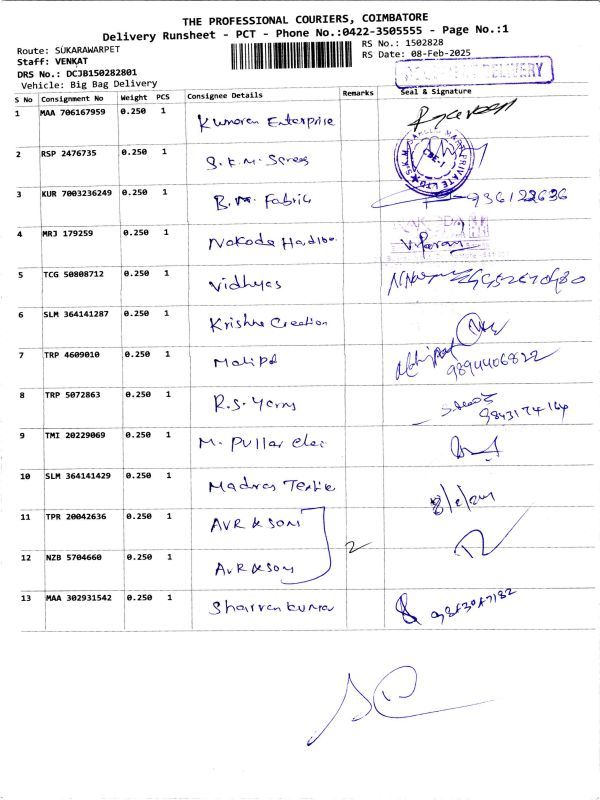 THE PROFESSIONAL COURIERS, COIMBATORE
Delivery Runsheet - PCT - Phone No.:0422-3505555 - Page No.:1
Route: SUKARAWARPET
RS No.: 1502828
Staff: VENKAT
RS Date: 08-Feb-2025
DRS No.: DCJB150282801
Vehicle: Big Bag Delivery
DELIVERY
S No Consignment No Weight PCS Consignee Details Remarks Seal & Signature
1 MAA 706167959 0.250 1 Kumaran Enterprise
2 RSP 2476735 0.250 1 S.K.M.
3 KUR 7003236249 0.250 1 B.M. Fabric
4 MRJ 179259 0.250 1 Nakoda
5 TCG 50808712 0.250 1 Vidhyas
6 SLM 364141287 0.250 1 Krishna Creation
7 TRP 4609010 0.250 1 9894406822
8 TRP 5072863 0.250 1 R.S. Yarns
9 TMI 20229069 0.250 1 M. Pullar
10 SLM 364141429 0.250 1 Madras Textile
11 TPR 20042636 0.250 1 AVR & SON
12 NZB 5704660 0.250 1 AVR & SON 2
13 MAA 302931542 0.250 1 Sharvan kumar